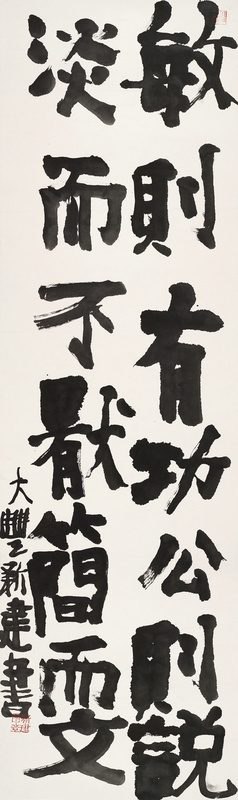 敏則有功公則説
淡而不厭簡而文
大豐新建書